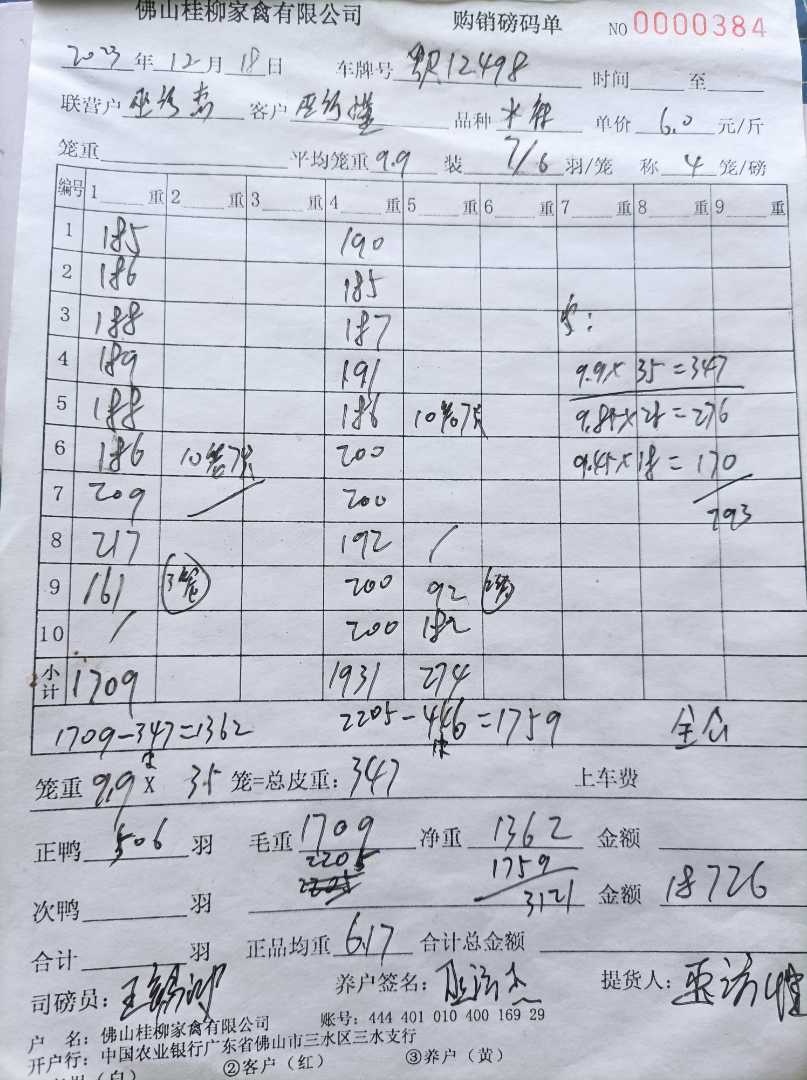 佛山桂柳家禽有限公司 购销磅码单 NO 0000384
2023年12月18日 车牌号 12498 时间 至
联营户 客户 品种 单价 6.0 元/斤
笼重 平均笼重 9.9 装 7/6 羽/笼 称 4 笼/磅
编号 1 重 2 重 3 重 4 重 5 重 6 重 7 重 8 重 9 重
1 185 190
2 186 185
3 188 187
4 189 191 9.9×35=347
5 188 186 10笼7只 9.85×28=276
6 186 10笼7只 200 9.45×18=170
7 209 200 793
8 217 192 /
9 161 3笼 200 92
10 / 200 182
小计 1709 1931 274
1709-347=1362 2205-446=1759
笼重 9.9 × 35 笼=总皮重: 347 上车费
正鸭 506 羽 毛重 1709 净重 1362 金额
2205 1759
次鸭 羽 3121 金额 18726
合计 羽 正品均重 6.17 合计总金额
司磅员: 养户签名: 提货人:
户 名: 佛山桂柳家禽有限公司 账号: 444 401 010 400 169 29
开户行: 中国农业银行广东省佛山市三水区三水支行
(白) ②客户(红) ③养户(黄)